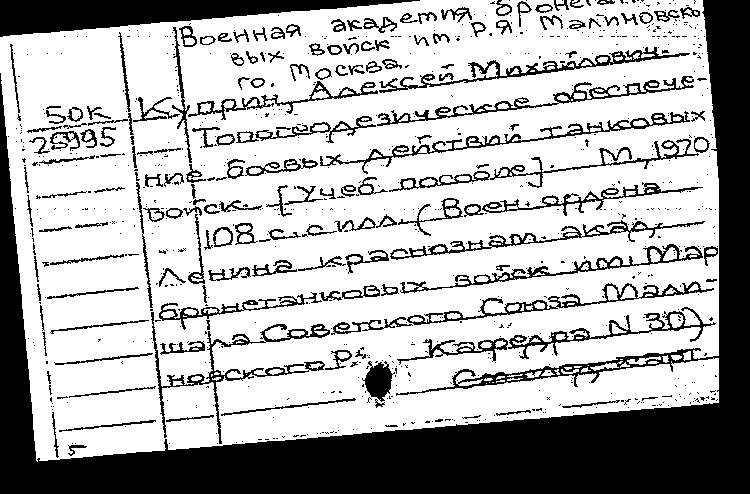 Военная академия бронетан
вых войск им. Р.Я. Малиновско
го. Москва.
50к Куприн, Алексей Михайлович.
26995 Топогеодезическое обеспече-
ние боевых действий танковых
войск. [Учеб. пособие]. М., 1970
108 с. с илл. (Воен. ордена
Ленина краснознам. акад.
бронетанковых войск им. Мар
шала Советского Союза Мали-
новского Р. Кафедра N 30).
См. след. карт.
5